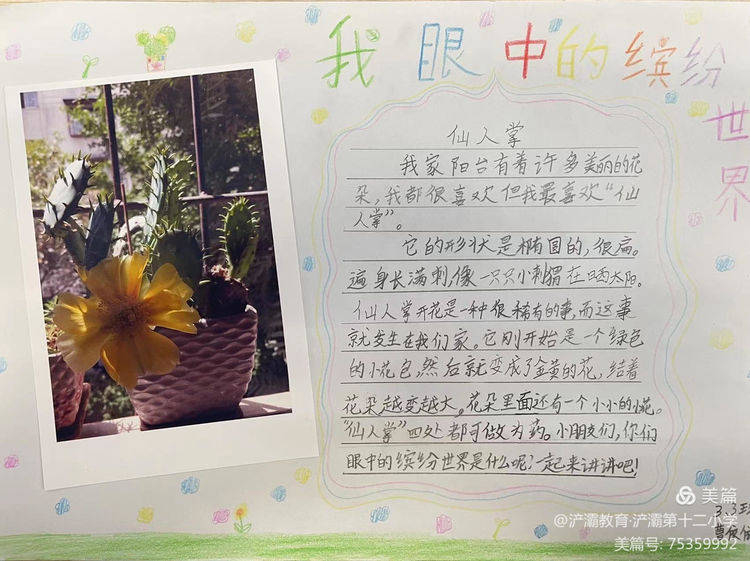 我眼中的缤纷世界
仙人掌
我家阳台有着许多美丽的花
朵,我都很喜欢但我最喜欢“仙
人掌”。
它的形状是椭圆的,很扁。
遍身长满刺,像一只只小刺猬在晒太阳。
仙人掌开花是一种很稀有的事,而这事
就发生在我们家。它刚开始是一个绿色
的小花包,然后就变成了金黄的花,结着
花朵越变越大。花朵里面还有一个小小的花。
“仙人掌”四处都可做为药。小朋友们,你们
眼中的缤纷世界是什么呢?一起来讲讲吧!
3.3班
美篇
@浐灞教育·浐灞第十二小学
美篇号: 75359992